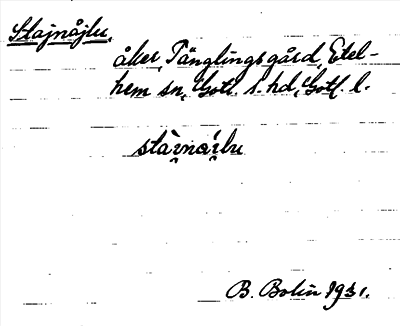 Stajnåjlu,
åker, Tänglingsgård, Etel-
hem sn, Gotl. s. hd, Gotl. l.
B. Bolin 1931.